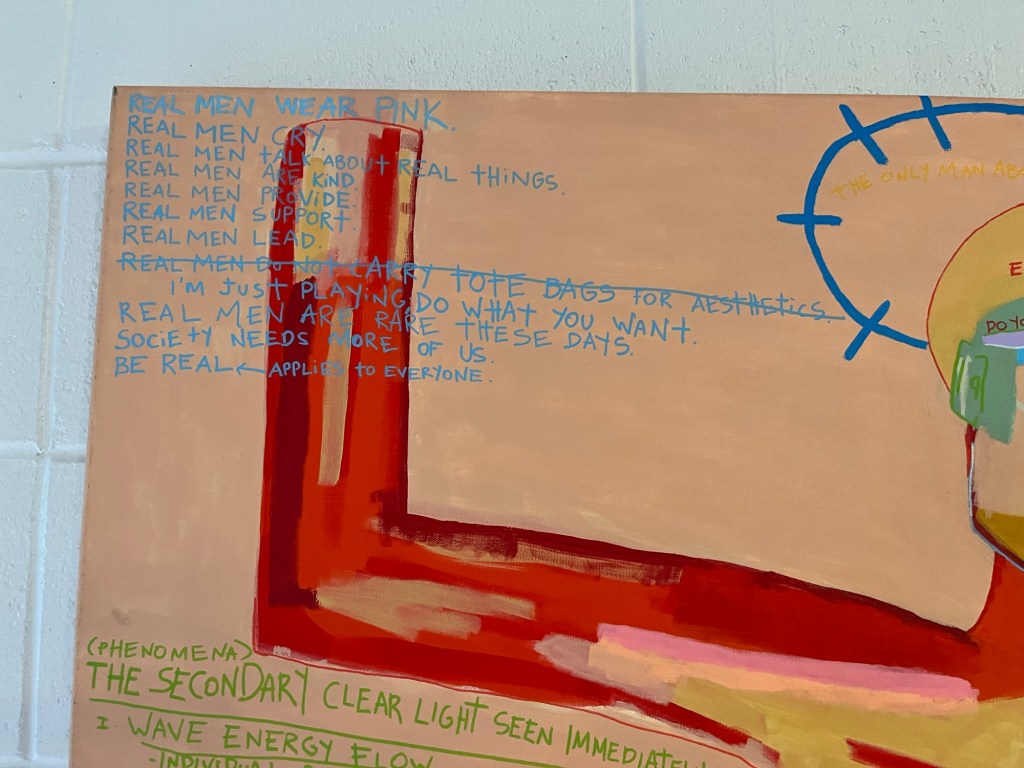 REAL MEN WEAR PINK.
REAL MEN CRY.
REAL MEN tALK ABOUT REAL tHiNGS.
REAL MEN ARE KiND
REAL MEN PROViDE.
REAL MEN SUPPORt.
REAL MEN LEAD.
REAL MEN DO NOt CARRY tOtE BAGS FOR AEStHEtiCS.
I'M JUSt PLAYiNG, DO WHAt YOU WANt.
REAL MEN ARE RARE tHESE DAYS.
SOCiEtY NEEDS MORE OF US.
BE REAL ← APPLiES tO EVERYONE.
tHE ONLY MAN
(PHENOMENA)
THE SECONDARY CLEAR LIGHt SEEN IMMEDIAtEL
I WAVE ENERGY FLOW